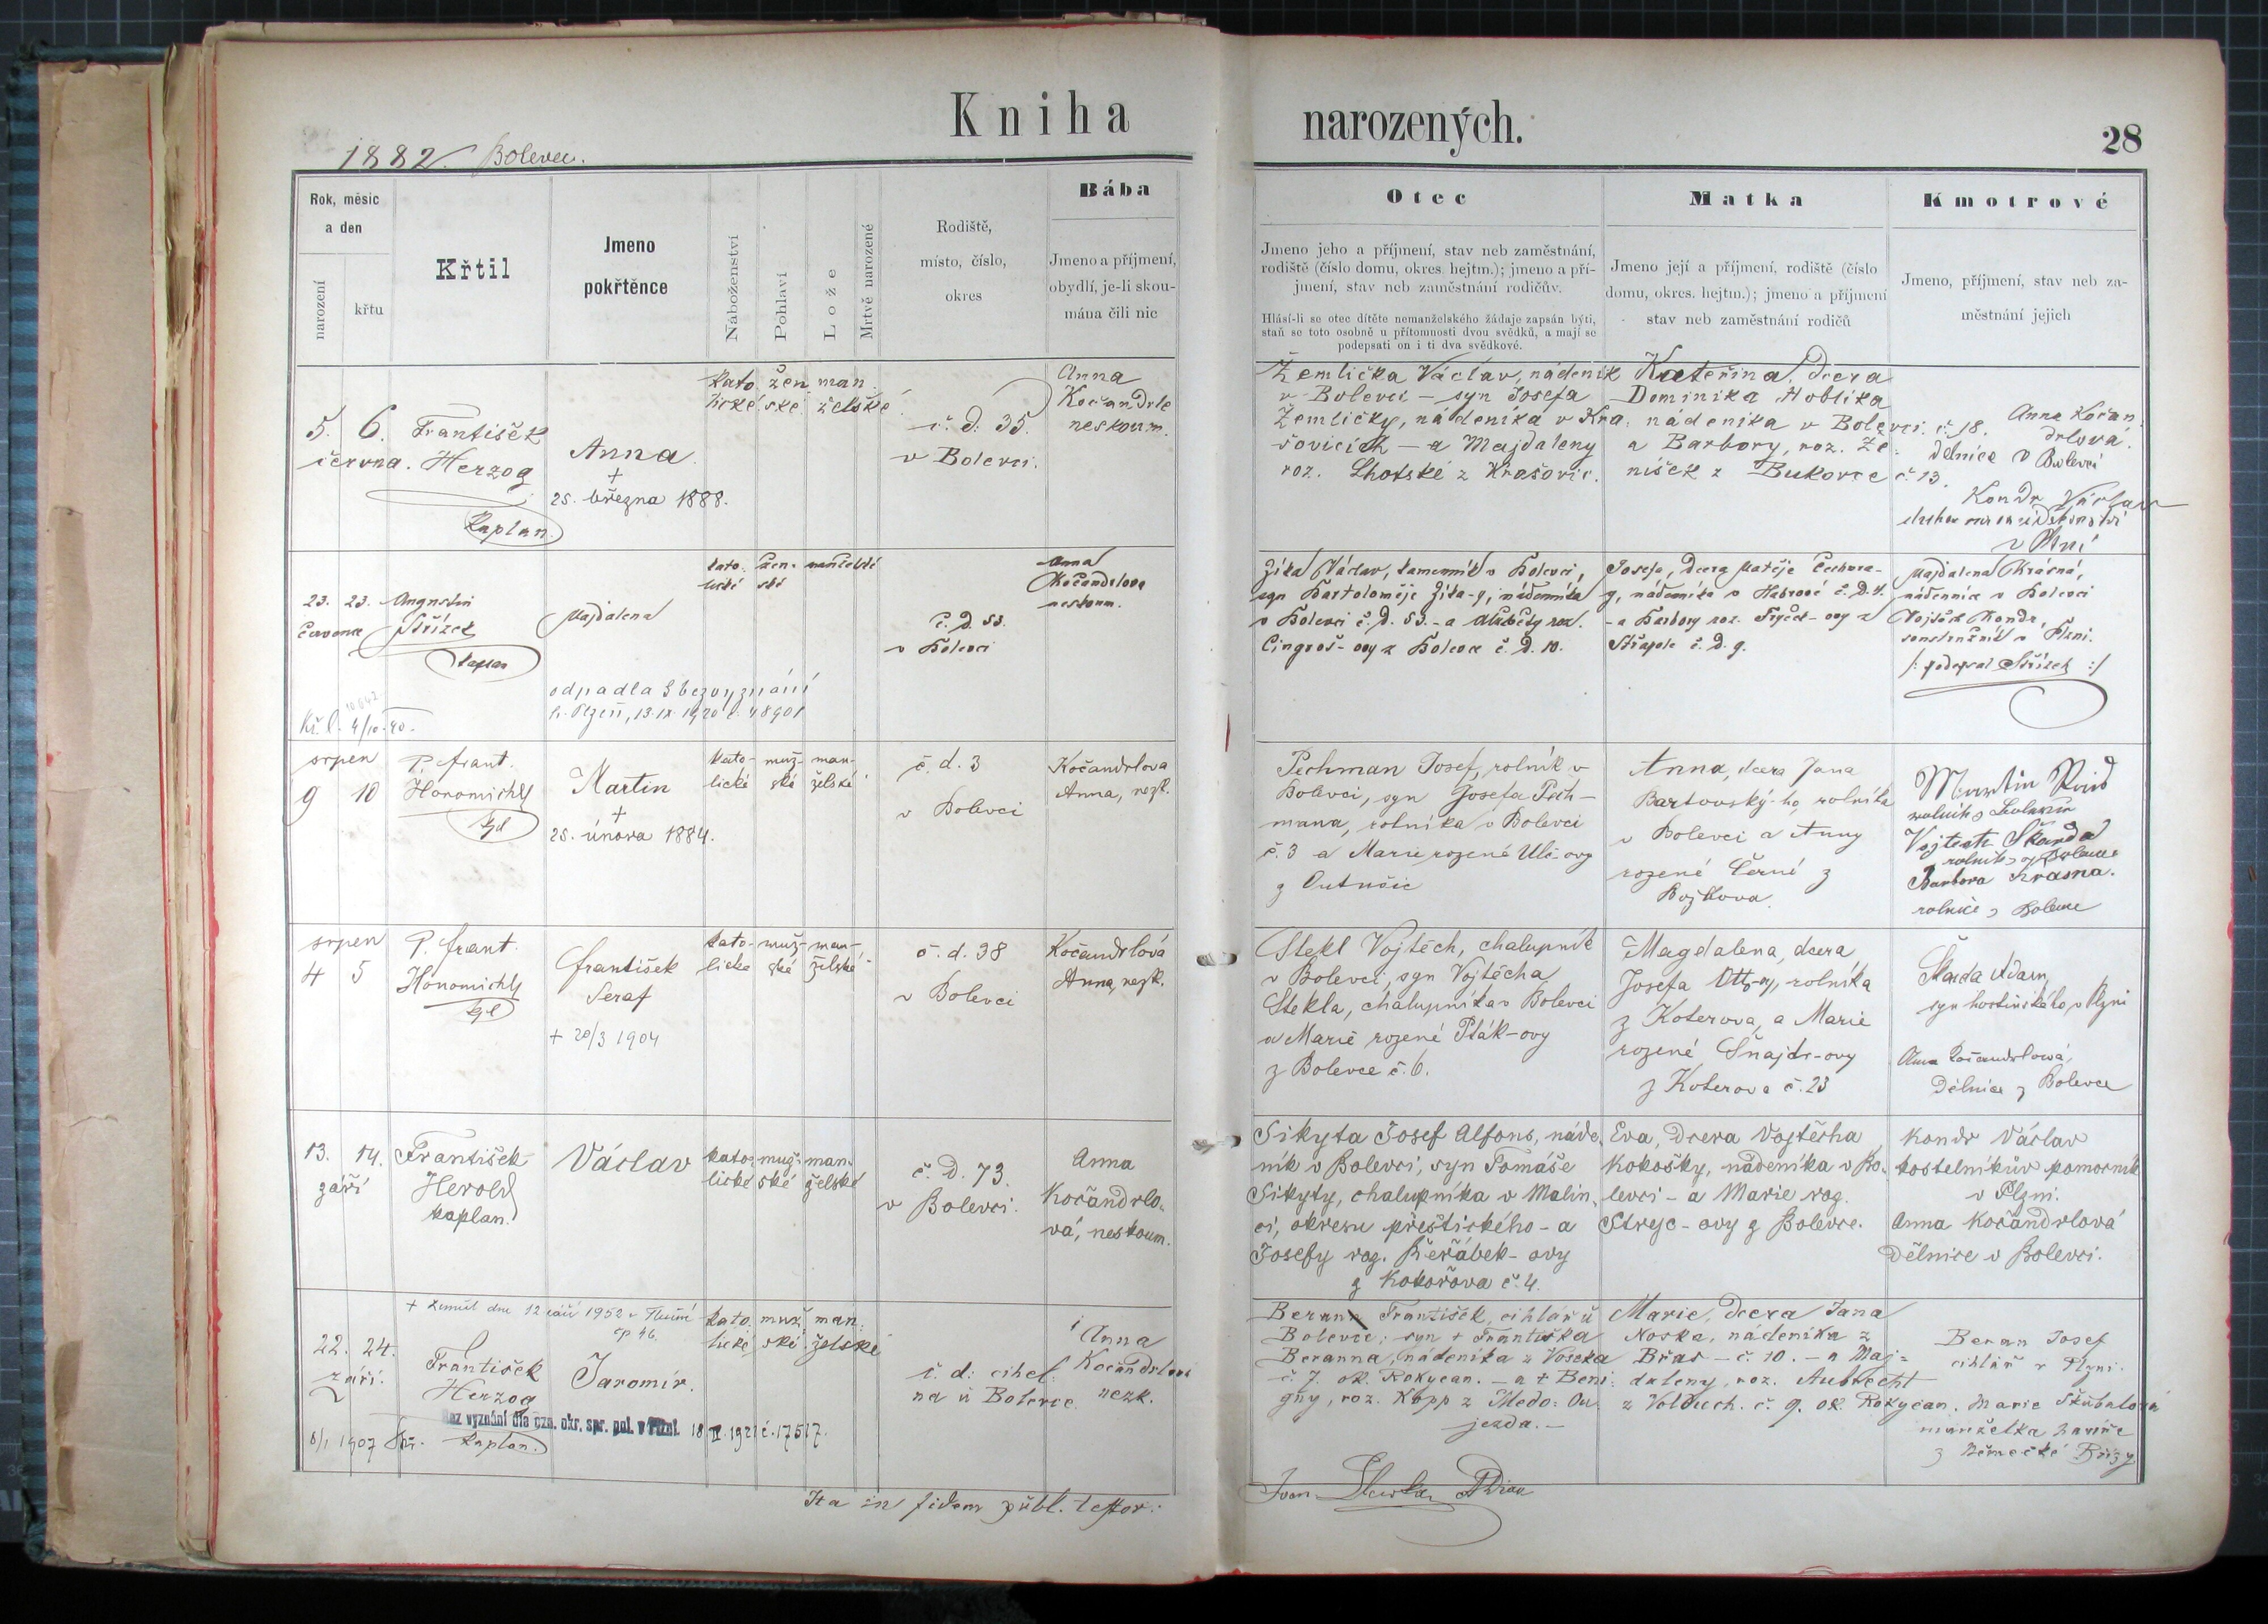 Kniha narozených.
28
1882 Bolevec.
Rok, měsíc
a den
narození
křtu
Křtil
Jmeno
pokřtěnce
Náboženství
Pohlaví
Lože
Mrtvě narozené
Rodiště,
místo, číslo,
okres
Bába
Jmeno a příjmení,
obydlí, je-li skou-
mána čili nic
Otec
Jmeno jeho a příjmení, stav neb zaměstnání,
rodiště (číslo domu, okres. hejtm.); jmeno a pří-
jmení, stav neb zaměstnání rodičův.
Hlásí-li se otec dítěte nemanželského žádaje zapsán býti,
staň se toto osobně u přítomnosti dvou svědků, a mají se
podepsati on i ti dva svědkové.
Matka
Jmeno její a příjmení, rodiště (číslo
domu, okres. hejtm.); jmeno a příjmení
stav neb zaměstnání rodičů
Kmotrové
Jmeno, příjmení, stav neb za-
městnání jejich
5. 6.
června.
František
Herzog
Kaplan.
Anna
+
25. března 1888.
kato. žen. man.
lické ské želské
č. d. 35.
v Bolevci.
Anna
Kočandrle
neskoum.
Žemlička Václav, nádeník
v Bolevci – syn Josefa
Žemličky, nádeníka v Kra:
šovicích – a Majdaleny
roz. Lhotské z Krašovic.
Kateřina, dcera
Dominika Hoblika
nádeníka v Bolevci. č. 18.
a Barbory, roz. Že:
níšek z Bukovce č. 13.
Anna Kočan
drlová.
dělnice v Bolevci
Kondr Václav
v Plzni
23. 23.
Července
Augustin
Střížek
kaplan
Majdalena
odpadla k bezvyznání
h. Plzeň, 13.IX.1920 č. 48901
Kř. l. 4/10.40.
kato- žen- manželské
lické ské
č. d. 53.
v Bolevci
Anna
Kočandrlova
neskoum.
Zíka Václav, kamenník v Bolevci,
syn Bartoloměje Zíka-y, nádenníka
v Bolevci č. d. 53. - a Alžběty roz.
Cingroš-ovy z Bolevce č. d. 10.
Josefa, dcera Matěje Čechura-
y, nádenníka v Habrové č. d. 4.
- a Barbory roz. Fryček-ovy z
Střapole č. d. 9.
Majdalena Krásná,
nádennice v Bolevci
Vojtěch Kondr,
soustružník v Plzni.
/: podepsal Střížek :/
srpen
9 10
P. frant.
Honomichl
kpl
Martin
+
25. února 1884.
kato- muž- man-
lické ské želské
č. d. 3
v Bolevci
Kočandrlova
Anna, nezk.
Pechman Josef, rolník v
Bolevci, syn Josefa Pech-
mana, rolníka v Bolevci
č. 3 a Marie rozené Ulč-ovy
z Outušic
Anna, dcera Jana
Bartovský-ho, rolníka
v Bolevci a Anny
rozené Černé z
Božkova.
Martin
Vojtech Škanda
rolník z Bolevce
Barbora Krasna.
rolnice z Bolevce
srpen
4 5
P. frant.
Honomichl
kpl
František
Seraf
+ 20/3 1904
kato- muž- man-
lické ské želské
č. d. 38
v Bolevci
Kočandrlová
Anna, nezk.
Stekl Vojtěch, chalupník
v Bolevci, syn Vojtěcha
Stekla, chalupníka v Bolevci
a Marie rozené Pták-ovy
z Bolevce č. 6.
Magdalena, dcera
Josefa Otty-ey, rolníka
z Koterova, a Marie
rozené Šnajdr-ovy
z Koterova č. 23
Škarda Adam,
syn hostinského v Plzni
Anna Kočandrlová,
Dělnice z Bolevce
13. 14.
září
František
Herold
kaplan.
Václav
kato- muž- man-
lické ské želské
č. d. 73.
v Bolevci.
Anna
Kočandrlo-
vá, neskoum.
Sikyta Josef Alfons, náde-
ník v Bolevci, syn Tomáše
Sikyty, chalupníka v Malin-
ci, okresu přeštického - a
Josefy roz. Řeřábek-ovy
z Kokořova č. 4.
Eva, dcera Vojtěcha
Kokošky, nádeníka v Bo-
levci - a Marie roz.
Stryc-ovy z Bolevce.
Kondr Václav
kostelníkův pomocník
v Plzni.
Anna Kočandrlová
Dělnice v Bolevci.
+ Zemřel dne 12 září 1952 v
čp 46.
22. 24.
září.
František
Herzog
Kaplan.
Jaromír.
Bez vyznání dle ozn. okr. spr. pol. v Plzni. 18 IV. 1921 č. 17517.
6/1 1907
kato. muž. man:
lické ské želské
č. d: cihel:
na u Bolevce.
Anna
Kočandrlová
nezk.
Beran František, cihlář u
Bolevce; syn + Františka
Beranna, nádeníka z Voseka
č. 7. ok. Rokycan. – a + Beni:
gny, roz. Kopp z Medo: Ou
jezda. –
Marie, dcera Jana
Noska, nádeníka z
Břas – č. 10. – a Maj=
daleny, roz. Aubrecht
z Volduch. č. 9. ok. Rokycan.
Beran Josef
cihlář v Plzni.
Marie Škubalová
manželka
z Německé Břízy
Ita in fidem publ. testor: